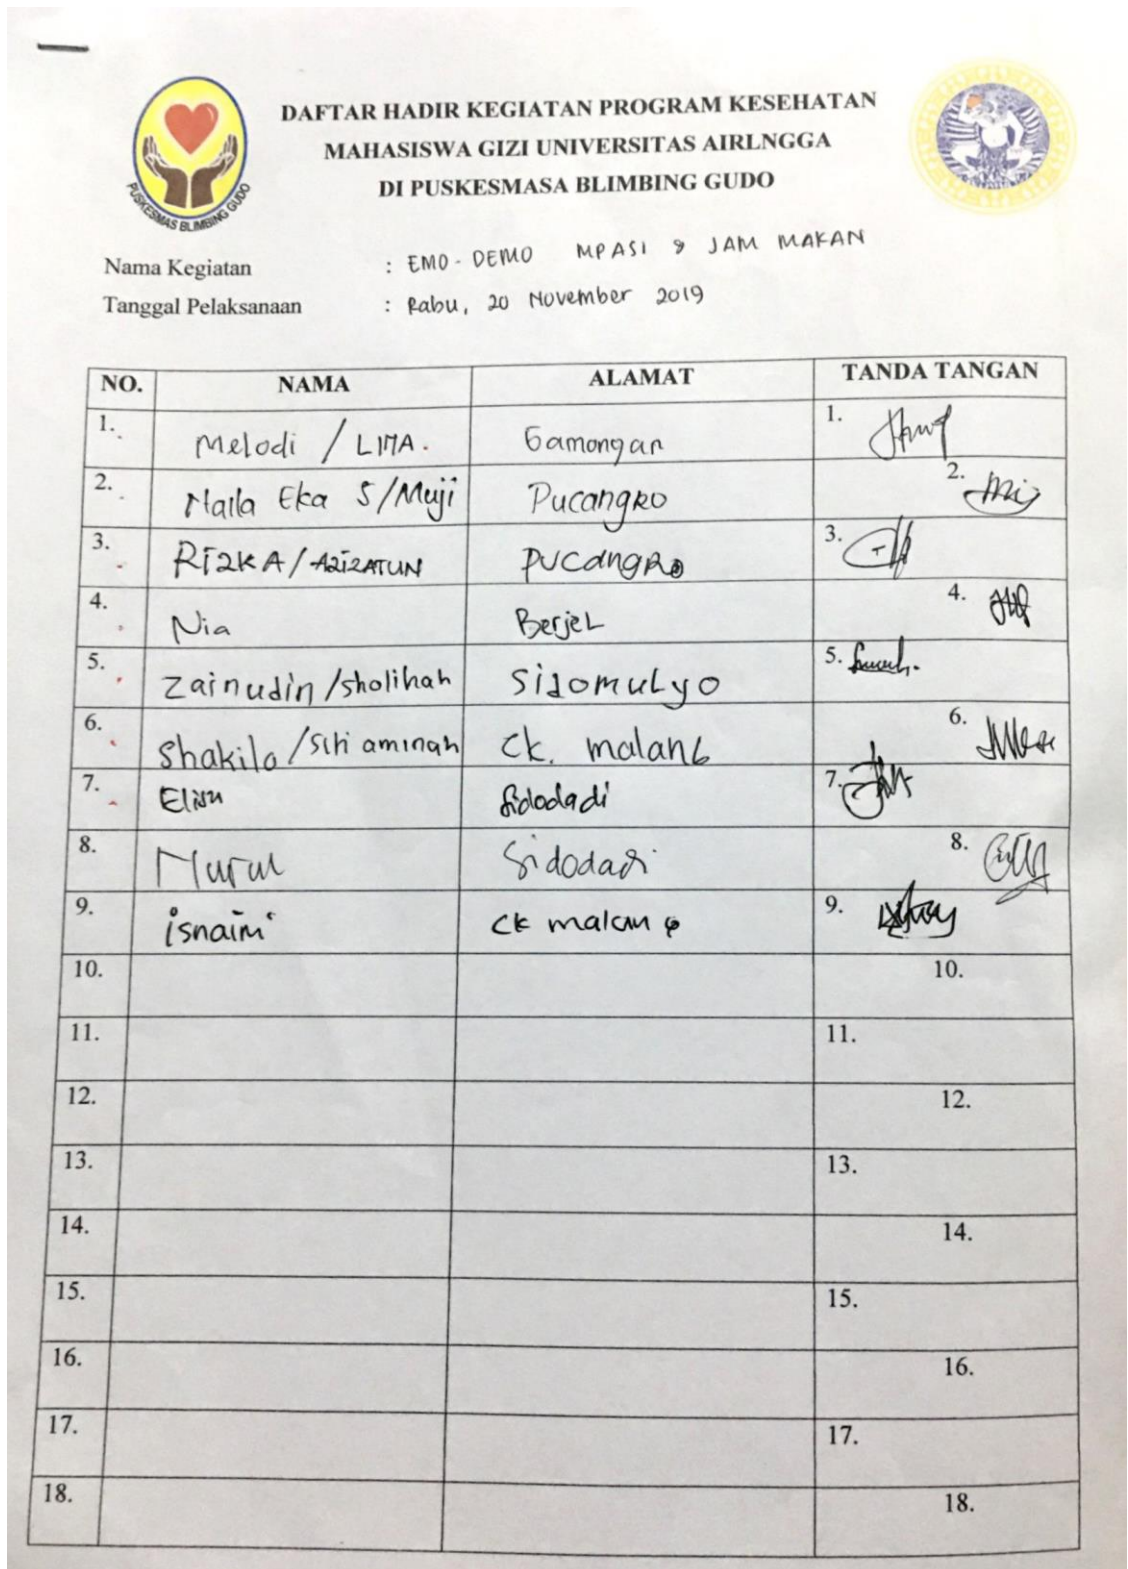 DAFTAR HADIR KEGIATAN PROGRAM KESEHATAN
MAHASISWA GIZI UNIVERSITAS AIRLNGGA
DI PUSKESMASA BLIMBING GUDO
PUSKESMAS BLIMBING GUDO
Nama Kegiatan : EMO-DEMO MPASI & JAM MAKAN
Tanggal Pelaksanaan : Rabu, 20 November 2019
NO. NAMA ALAMAT TANDA TANGAN
1. Melodi / LIMA. Gamongan 1.
2. Naila Eka S/Muji Pucangro 2.
3. RIZKA/AZIZATUN Pucangro 3.
4. Nia Berjel 4.
5. Zainudin/sholihah Sidomulyo 5.
6. Shakila/siti aminah Ck. malang 6.
7. Sidodadi 7.
8. Nurul Sidodadi 8.
9. isnaini CK malang 9.
10. 10.
11. 11.
12. 12.
13. 13.
14. 14.
15. 15.
16. 16.
17. 17.
18. 18.